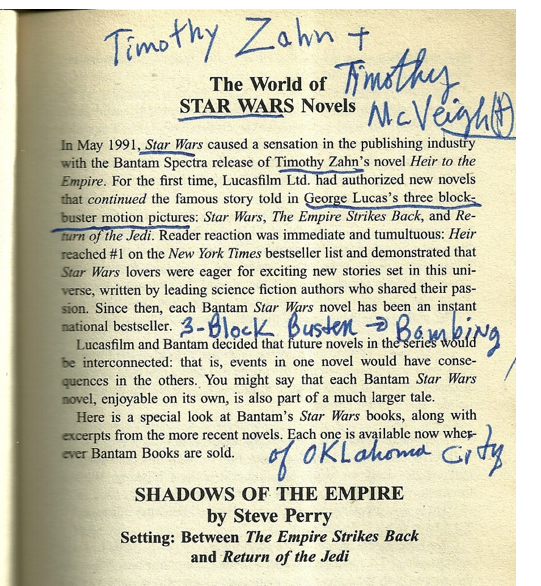 Timothy Zahn +
Timothy
McVeigh(t)
The World of
STAR WARS Novels
In May 1991, Star Wars caused a sensation in the publishing industry
with the Bantam Spectra release of Timothy Zahn's novel Heir to the
Empire. For the first time, Lucasfilm Ltd. had authorized new novels
that continued the famous story told in George Lucas's three block-
buster motion pictures: Star Wars, The Empire Strikes Back, and Re-
turn of the Jedi. Reader reaction was immediate and tumultuous: Heir
reached #1 on the New York Times bestseller list and demonstrated that
Star Wars lovers were eager for exciting new stories set in this uni-
verse, written by leading science fiction authors who shared their pas-
sion. Since then, each Bantam Star Wars novel has been an instant
national bestseller.
3-Block Buster → Bombing
Lucasfilm and Bantam decided that future novels in the series would
be interconnected: that is, events in one novel would have conse-
quences in the others. You might say that each Bantam Star Wars
novel, enjoyable on its own, is also part of a much larger tale.
Here is a special look at Bantam's Star Wars books, along with
excerpts from the more recent novels. Each one is available now wher-
ever Bantam Books are sold.
of OKLahoma City
SHADOWS OF THE EMPIRE
by Steve Perry
Setting: Between The Empire Strikes Back
and Return of the Jedi